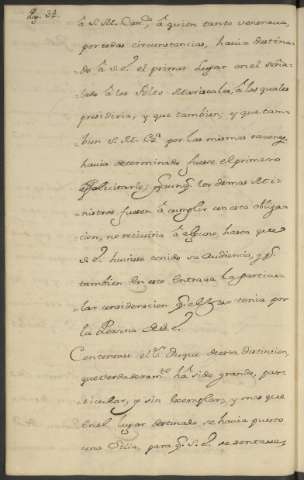 Pag. 32.
á S. M. Cam.ª, á quien tanto venerava,
por todas circunstancias, havia destina-
do á S. E. el primer Lugar en el seña-
lado á los Feldes Mariscales, á los quales
presidiria, y que tambien; y que tam-
bien S. M. C.ª por las mismas razones
havia determinado fuese el primero
á felicitarle; los demas Mi-
nistros fuesen á cumplir con esta obliga-
cion, no reciviria á alguno, hasta que
S. E. huviese tenido su Audiencia, y
tambien en esto entrava la particu-
lar consideracion que tenia por
la Persona de S. E.
Contentose el S.r Duque de esta distincion,
que verdaderam.te há sido grande, par-
ticular, y sin Exemplar, y mas que
en el Lugar destinado se havia puesto
una Silla, para q. S. E. se sentasse